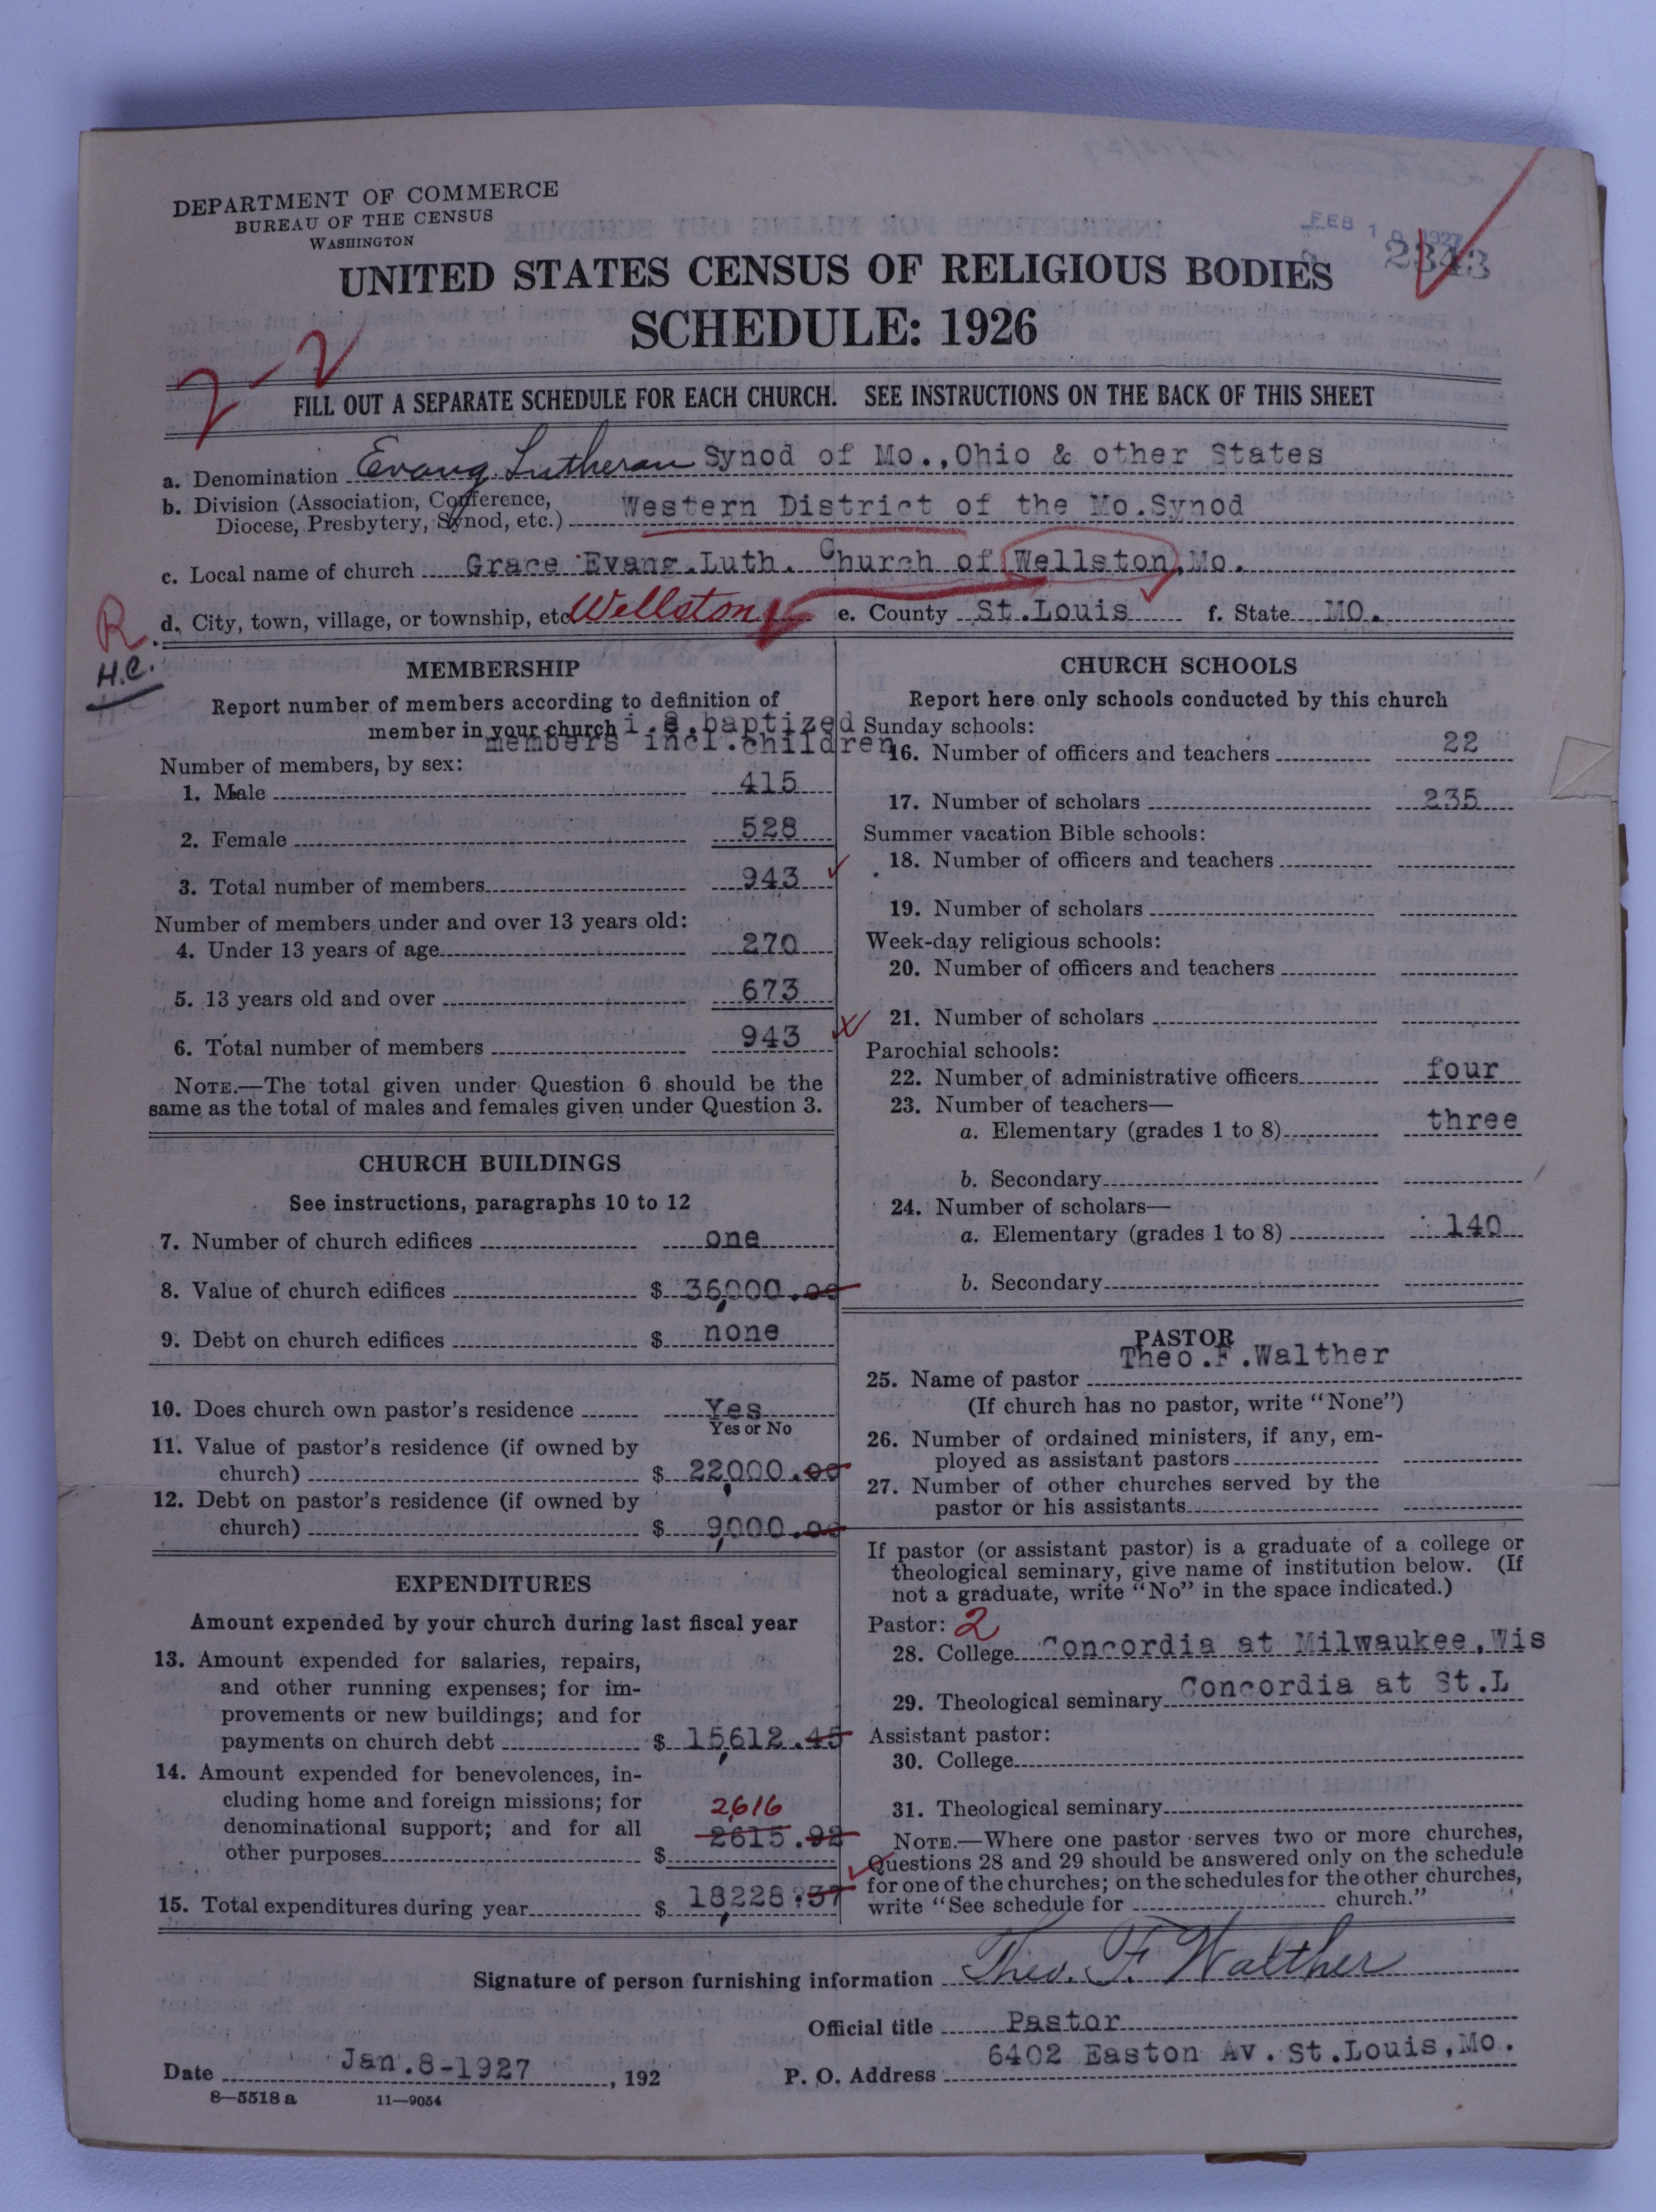 DEPARTMENT OF COMMERCE
BUREAU OF THE CENSUS
WASHINGTON
FEB 1 1927
2343
UNITED STATES CENSUS OF RELIGIOUS BODIES
SCHEDULE: 1926
2-2
FILL OUT A SEPARATE SCHEDULE FOR EACH CHURCH. SEE INSTRUCTIONS ON THE BACK OF THIS SHEET
a. Denomination Evang. Lutheran Synod of Mo.,Ohio & other States
b. Division (Association, Conference,
Diocese, Presbytery, Synod, etc.) Western District of the Mo.Synod
c. Local name of church Grace Evang.Luth. Church of Wellston,Mo.
R.
d. City, town, village, or township, etc Wellston e. County St.Louis f. State MO.
H.C.
MEMBERSHIP
Report number of members according to definition of
member in your church i.e.baptized
members incl.children
Number of members, by sex:
1. Male 415
2. Female 528
3. Total number of members 943
Number of members under and over 13 years old:
4. Under 13 years of age 270
5. 13 years old and over 673
6. Total number of members 943
NOTE.—The total given under Question 6 should be the
same as the total of males and females given under Question 3.
CHURCH BUILDINGS
See instructions, paragraphs 10 to 12
7. Number of church edifices one
8. Value of church edifices $ 36,000.00
9. Debt on church edifices $ none
10. Does church own pastor's residence Yes
Yes or No
11. Value of pastor's residence (if owned by
church) $ 22,000.00
12. Debt on pastor's residence (if owned by
church) $ 9,000.00
EXPENDITURES
Amount expended by your church during last fiscal year
13. Amount expended for salaries, repairs,
and other running expenses; for im-
provements or new buildings; and for
payments on church debt $ 15,612.45
14. Amount expended for benevolences, in-
cluding home and foreign missions; for
2,616
denominational support; and for all 2615.92
other purposes $
15. Total expenditures during year $ 18,228.37
CHURCH SCHOOLS
Report here only schools conducted by this church
Sunday schools:
16. Number of officers and teachers 22
17. Number of scholars 235
Summer vacation Bible schools:
18. Number of officers and teachers
19. Number of scholars
Week-day religious schools:
20. Number of officers and teachers
21. Number of scholars
Parochial schools:
22. Number of administrative officers four
23. Number of teachers—
a. Elementary (grades 1 to 8) three
b. Secondary
24. Number of scholars—
a. Elementary (grades 1 to 8) 140
b. Secondary
PASTOR
Theo.F.Walther
25. Name of pastor
(If church has no pastor, write "None")
26. Number of ordained ministers, if any, em-
ployed as assistant pastors
27. Number of other churches served by the
pastor or his assistants
If pastor (or assistant pastor) is a graduate of a college or
theological seminary, give name of institution below. (If
not a graduate, write "No" in the space indicated.)
Pastor: 2
28. College Concordia at Milwaukee,Wis
29. Theological seminary Concordia at St.L
Assistant pastor:
30. College
31. Theological seminary
NOTE.—Where one pastor serves two or more churches,
Questions 28 and 29 should be answered only on the schedule
for one of the churches; on the schedules for the other churches,
write "See schedule for church."
Signature of person furnishing information Theo. F. Walther
Official title Pastor
Date Jan.8-1927, 192 P. O. Address 6402 Easton Av. St.Louis,Mo.
8—5518 a 11—9054